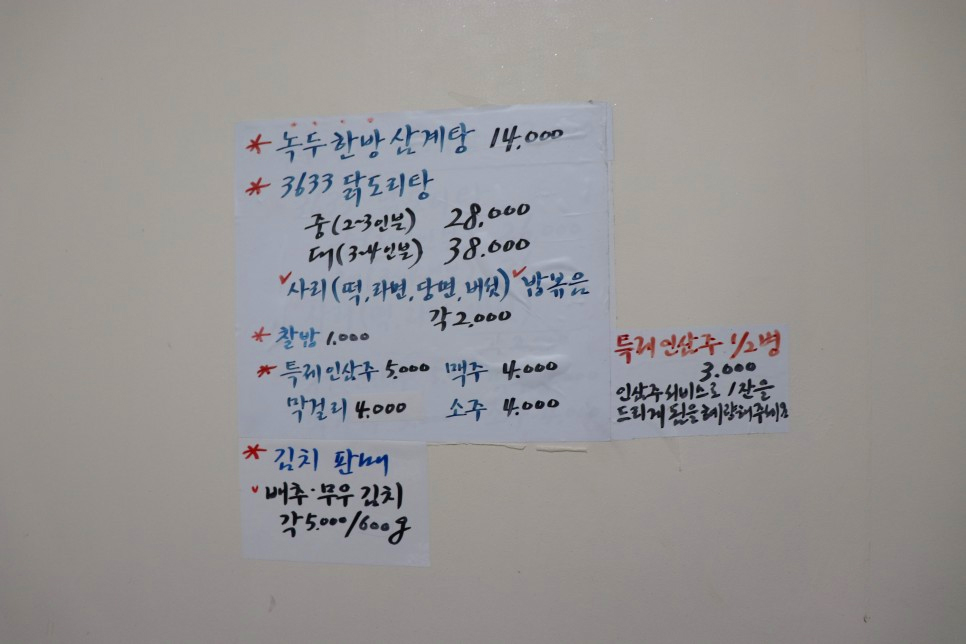 * 녹두 한방 삼계탕 14,000
* 3633 닭도리탕
중(2~3인분) 28,000
대(3~4인분) 38,000
✓사리(떡,라면,당면,버섯) ✓볶음
각 2,000
* 찰밥 1,000
* 특레 인삼주 5,000 맥주 4,000
막걸리 4,000 소주 4,000
특레 인삼주 1/2병
3,000
인삼주 서비스로 1잔을
드리게 됨을 헤량해주세요
* 김치 판매
✓ 배추·무우 김치
각 5,000/600g